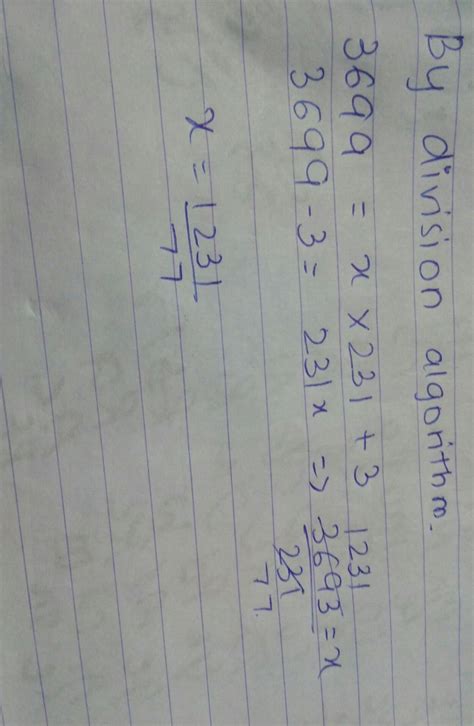 By division algorithm.
3699 = x × 231 + 3
3699 - 3 = 231x => 3693/231 = x
1231
77
x = 1231/77